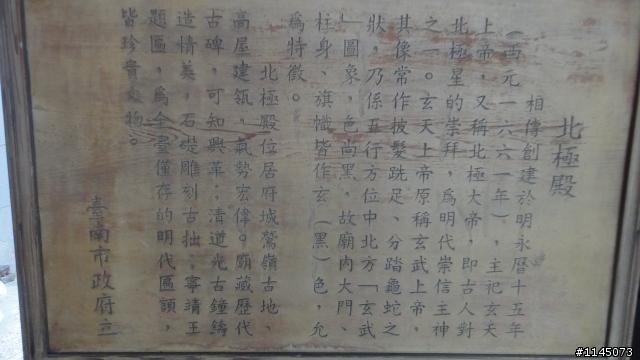 北極殿
相傳創建於明永曆十五年
（西元一六六一年），主祀玄天
上帝，又稱北極大帝，即古人對
北極星的崇拜，為明代崇信主神
之一。玄天上帝原稱玄武上帝，
其像常作披髮跣足、分踏龜蛇之
狀，乃係五行方位中北方「玄武
」圖象，色尚黑，故廟內大門、
柱身、旗幟皆作玄（黑）色，允
為特徵。
北極殿位居府城鷲嶺古地、
高屋建瓴，氣勢宏偉。廟藏歷代
古碑，可知興革；清道光古鐘鑄
造情美，石礎雕刻古拙；寧靖王
題匾，為全臺僅存的明代匾額，
皆珍貴文物。
臺南市政府立
#1145073